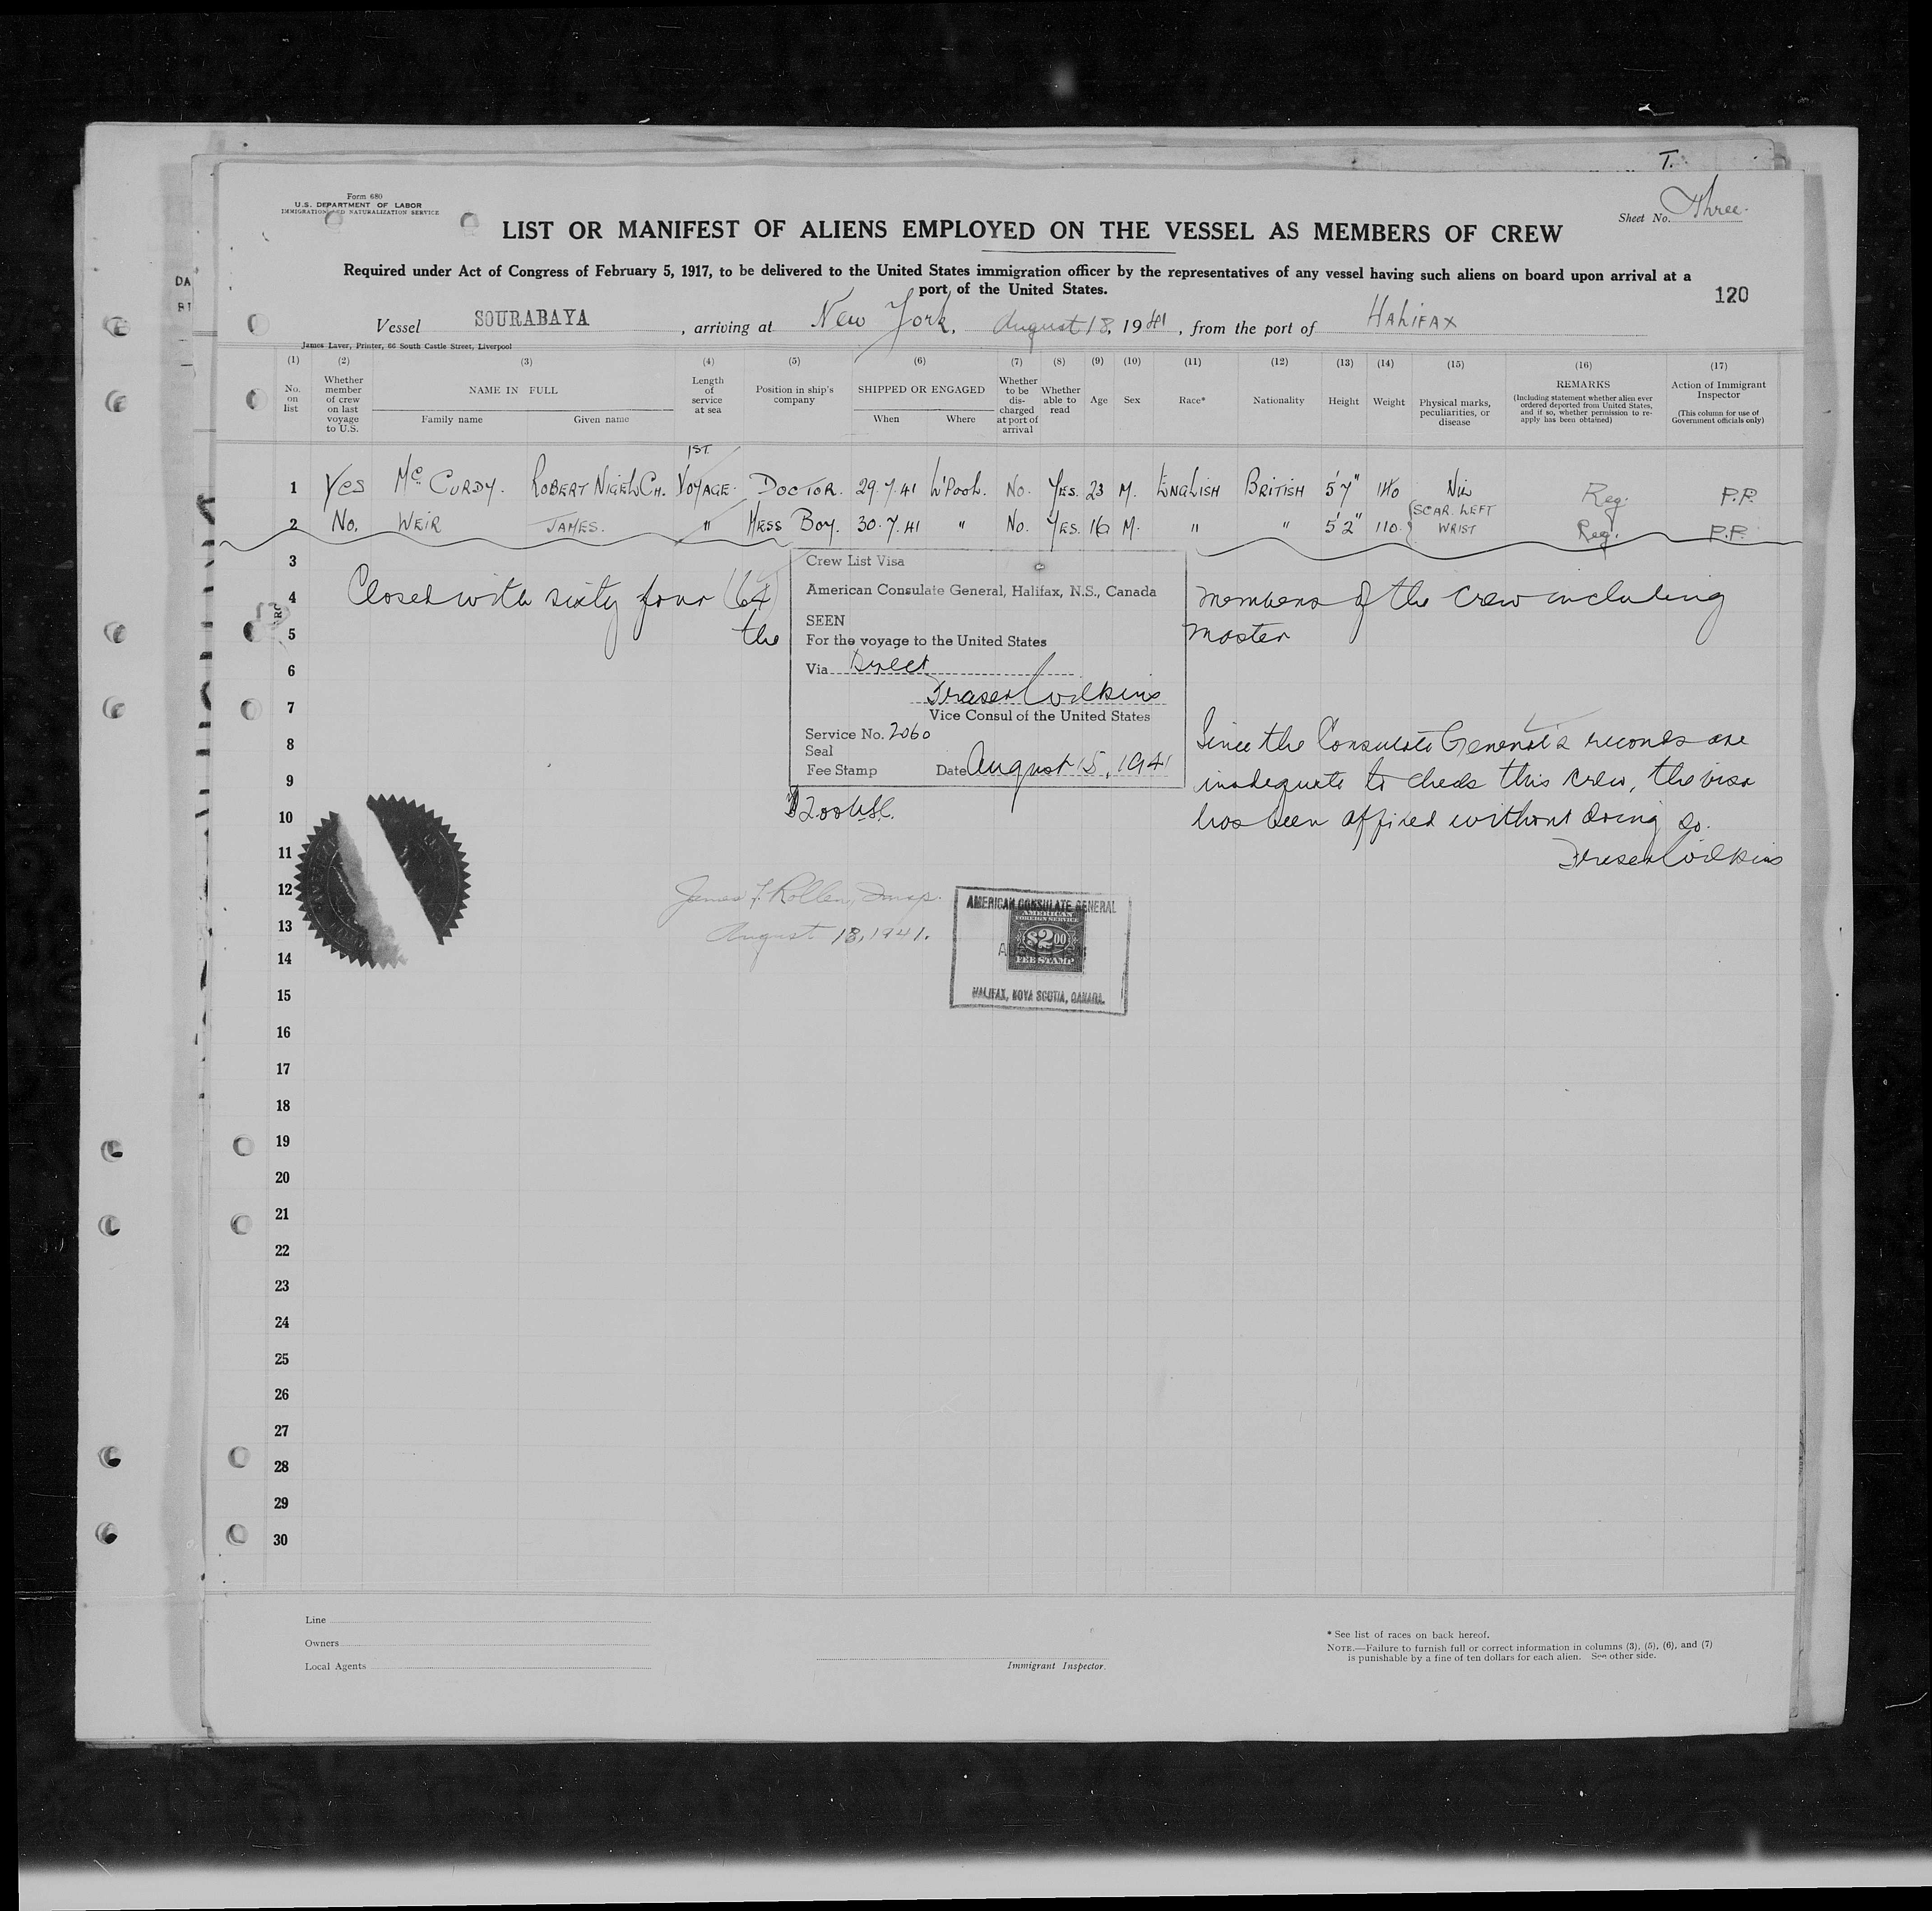 T.
Form 680
U.S. DEPARTMENT OF LABOR
IMMIGRATION AND NATURALIZATION SERVICE
Sheet No. Three.
LIST OR MANIFEST OF ALIENS EMPLOYED ON THE VESSEL AS MEMBERS OF CREW
Required under Act of Congress of February 5, 1917, to be delivered to the United States immigration officer by the representatives of any vessel having such aliens on board upon arrival at a
port of the United States.
120
Vessel SOURABAYA, arriving at New York, August 18, 1941, from the port of HALIFAX
James Laver, Printer, 66 South Castle Street, Liverpool
(1) (2) (3) (4) (5) (6) (7) (8) (9) (10) (11) (12) (13) (14) (15) (16) (17)
No. on list
Whether member of crew on last voyage to U.S.
NAME IN FULL
Family name Given name
Length of service at sea
Position in ship's company
SHIPPED OR ENGAGED
When Where
Whether to be discharged at port of arrival
Whether able to read
Age
Sex
Race*
Nationality
Height
Weight
Physical marks, peculiarities, or disease
REMARKS
(Including statement whether alien ever ordered deported from United States, and if so, whether permission to re-apply has been obtained)
Action of Immigrant Inspector
(This column for use of Government officials only)
1 Yes McCURDY. ROBERT NIGEL CH. 1ST. VOYAGE. DOCTOR. 29.7.41 L'POOL. No. YES. 23 M. ENGLISH BRITISH 5'7" 140 NIL Reg. P.P.
2 No. WEIR JAMES. " MESS BOY. 30.7.41 " No. YES. 16 M. " " 5'2" 110. SCAR. LEFT WRIST Reg. P.P.
3
4
5
6
7
8
9
10
11
12
13
14
15
16
17
18
19
20
21
22
23
24
25
26
27
28
29
30
Closed with sixty four (64) members of the crew including
the master
Crew List Visa
American Consulate General, Halifax, N.S., Canada
SEEN
For the voyage to the United States
Via Direct
Fraser Wilkins
Vice Consul of the United States
Service No. 2060
Seal
Fee Stamp Date August 15, 1941
$2.00
Since the Consulate General's records are
inadequate to check this crew, the visa
has been affixed without doing so.
Fraser Wilkins
James F. Rollen, Insp.
August 18, 1941.
AMERICAN CONSULATE GENERAL
AMERICAN
FOREIGN SERVICE
$2.00
FEE STAMP
HALIFAX, NOVA SCOTIA, CANADA.
Line
Owners
Local Agents
Immigrant Inspector.
* See list of races on back hereof.
NOTE.—Failure to furnish full or correct information in columns (3), (5), (6), and (7)
is punishable by a fine of ten dollars for each alien. See other side.